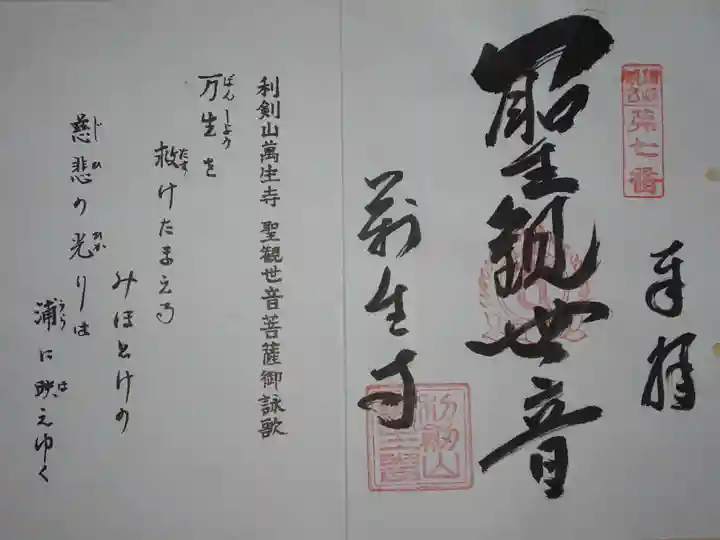 第七番
奉拝
聖観世音
萬生寺
利剣山
利剣山萬生寺 聖観世音菩薩御詠歌
万生を
ばんしょう
救けたまえる
たす
みほとけの
慈悲の光りは
じひ ひか
浦に映えゆく
うら は